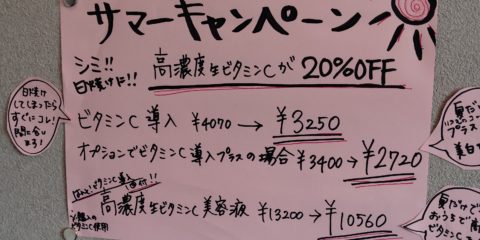 サマーキャンペーン
シミ!!
日焼けに!!
高濃度生ビタミンCが 20%OFF
日焼け
してしまったら
すぐにコレ!
間に合い
ます!
ビタミンC 導入 ¥4070 → ¥3250
オプションでビタミンC 導入プラスの場合 ¥3400 → ¥2720
夏だけ
プラス
美白
高濃度生ビタミンC 美容液 ¥13200 → ¥10560
ビタミンC使用
夏だけ
おうちで
ビタミンC